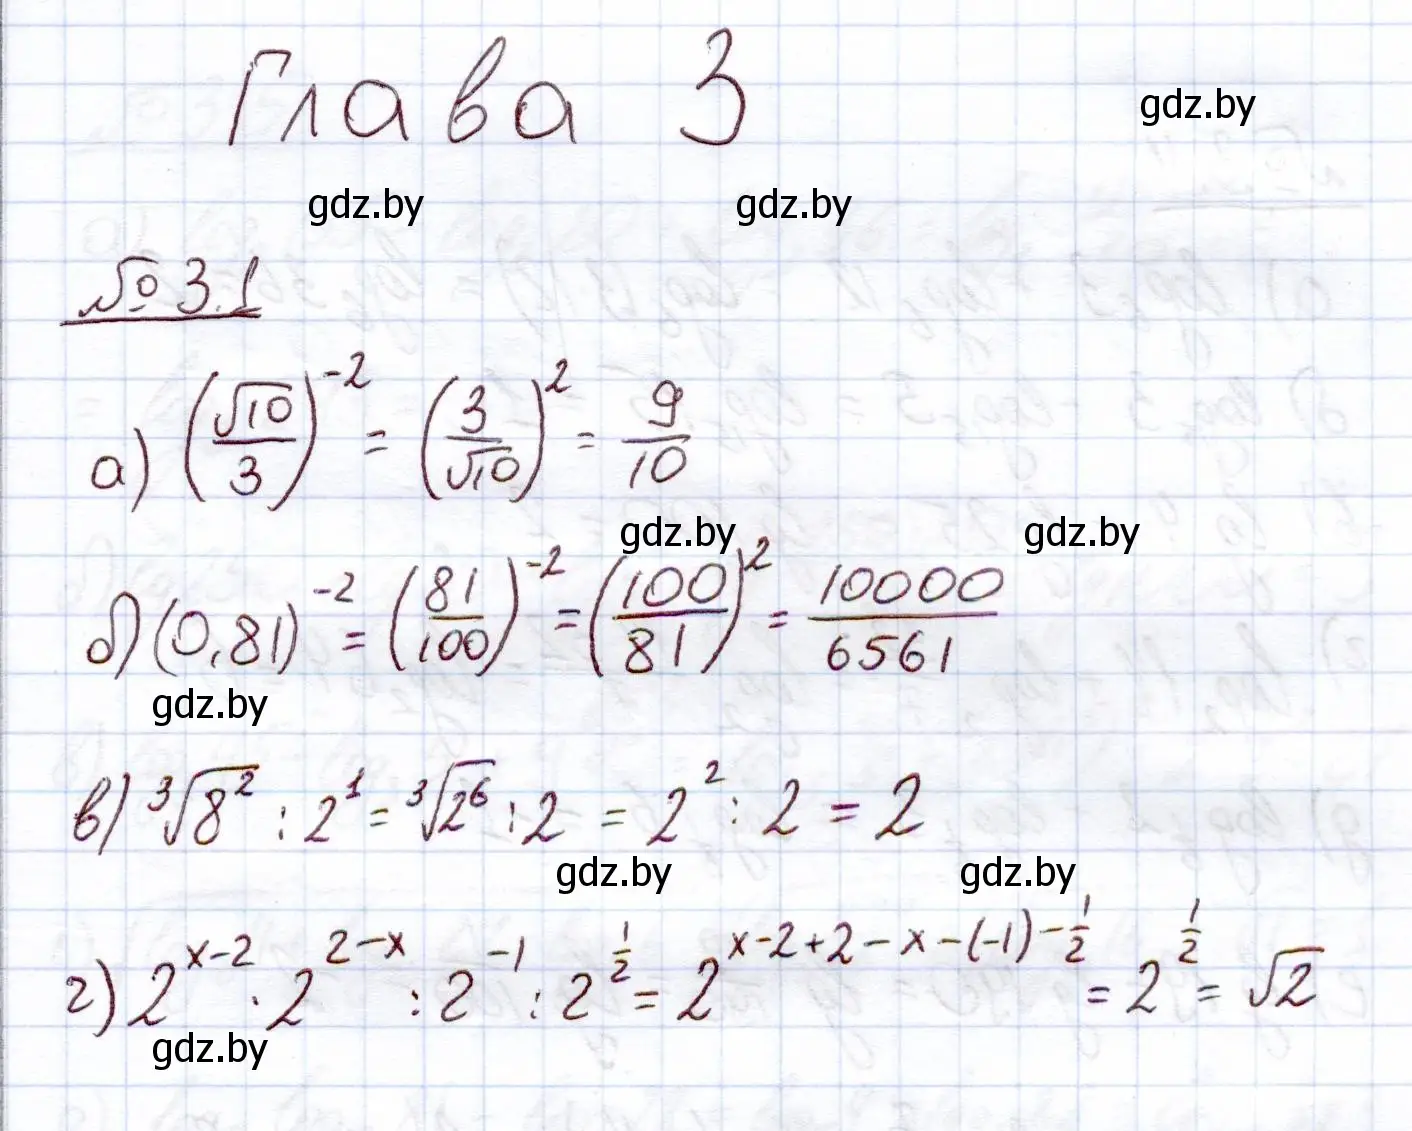 Глава 3
gdz.by
gdz.by gdz.by
№ 3.1
а) (√10/3)^-2 = (3/√10)^2 = 9/10
gdz.by gdz.by
б) (0,81)^-2 = (81/100)^-2 = (100/81)^2 = 10000/6561
gdz.by
в) ∛8^2 : 2^1 = ∛2^6 : 2 = 2^2 : 2 = 2
gdz.by gdz.by
г) 2^(x-2) · 2^(2-x) : 2^-1 : 2^(1/2) = 2^(x-2+2-x-(-1)-1/2) = 2^(1/2) = √2
gdz.by